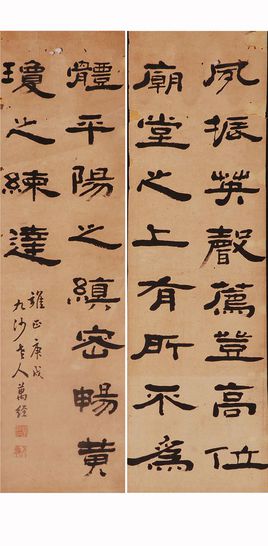 夙振英聲薦登高位
廟堂之上有所不為
體平陽之縝密暢黄
瓊之練達
雍正庚戌
九沙老人萬經